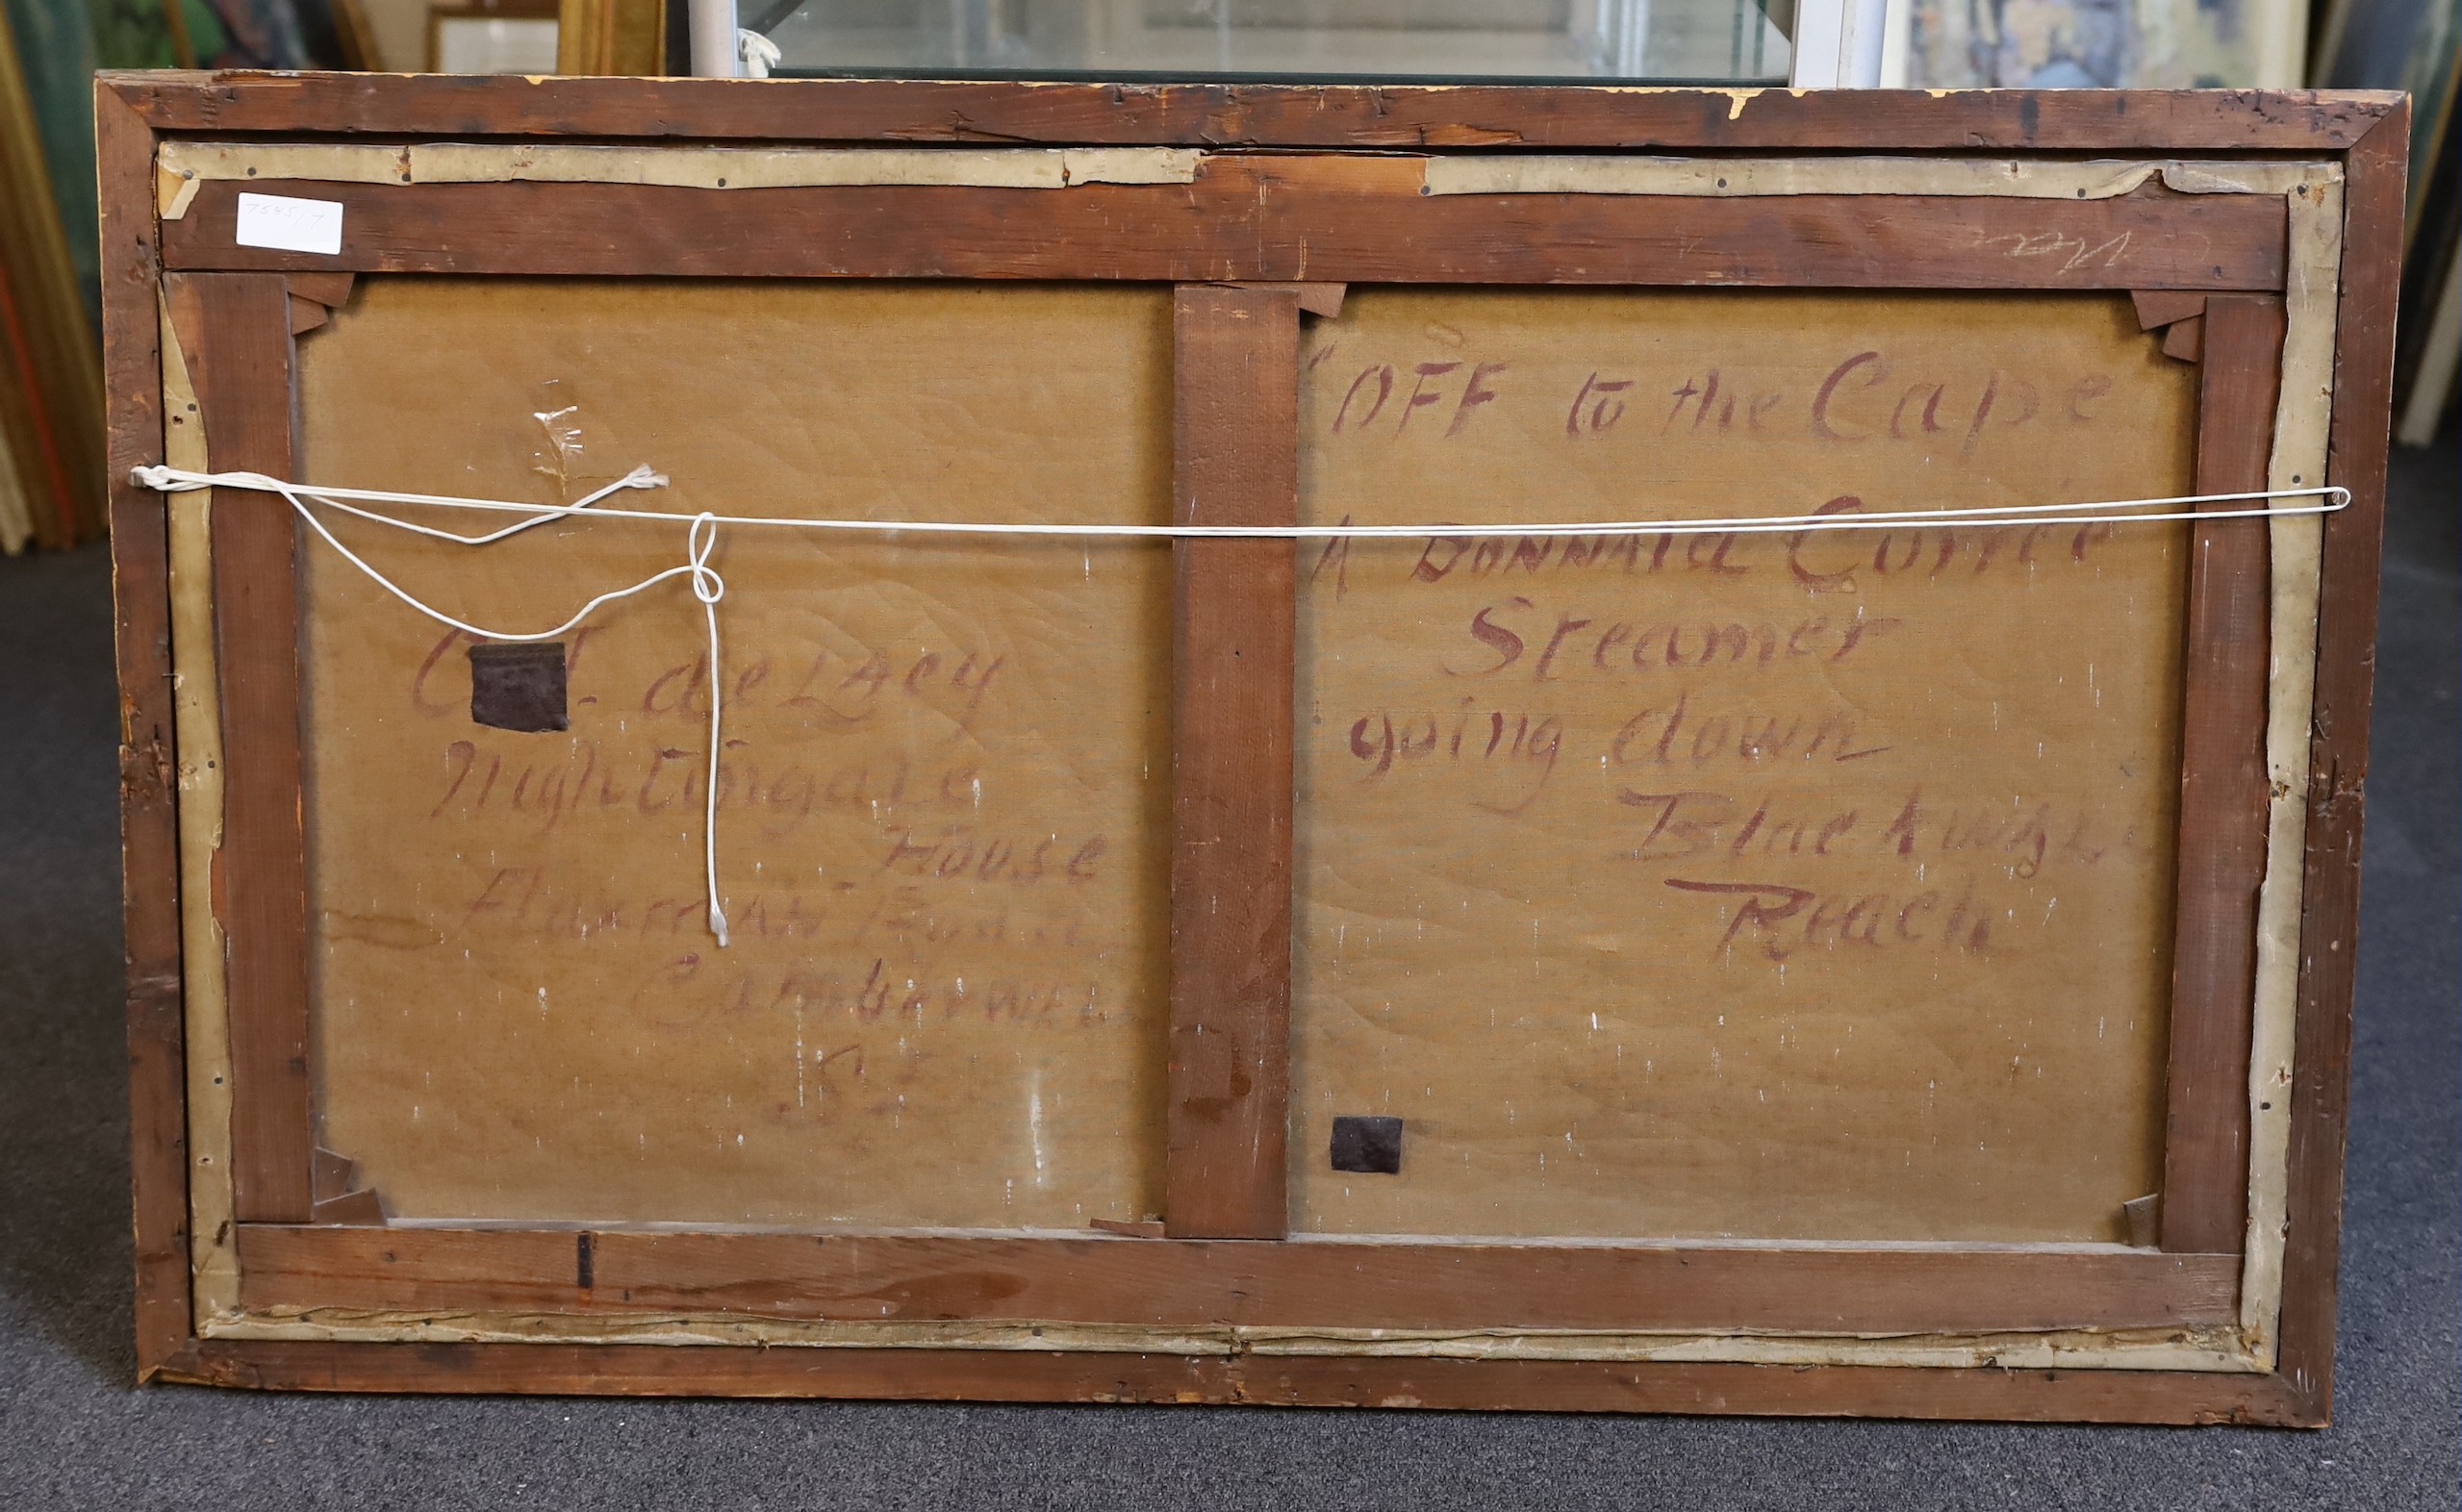 "OFF to the Cape
A DONNALd Currie
Steamer
going down
Blackwall
Reach
C de LAcy
Nightingale
House
Flaxman Road
Camberwell